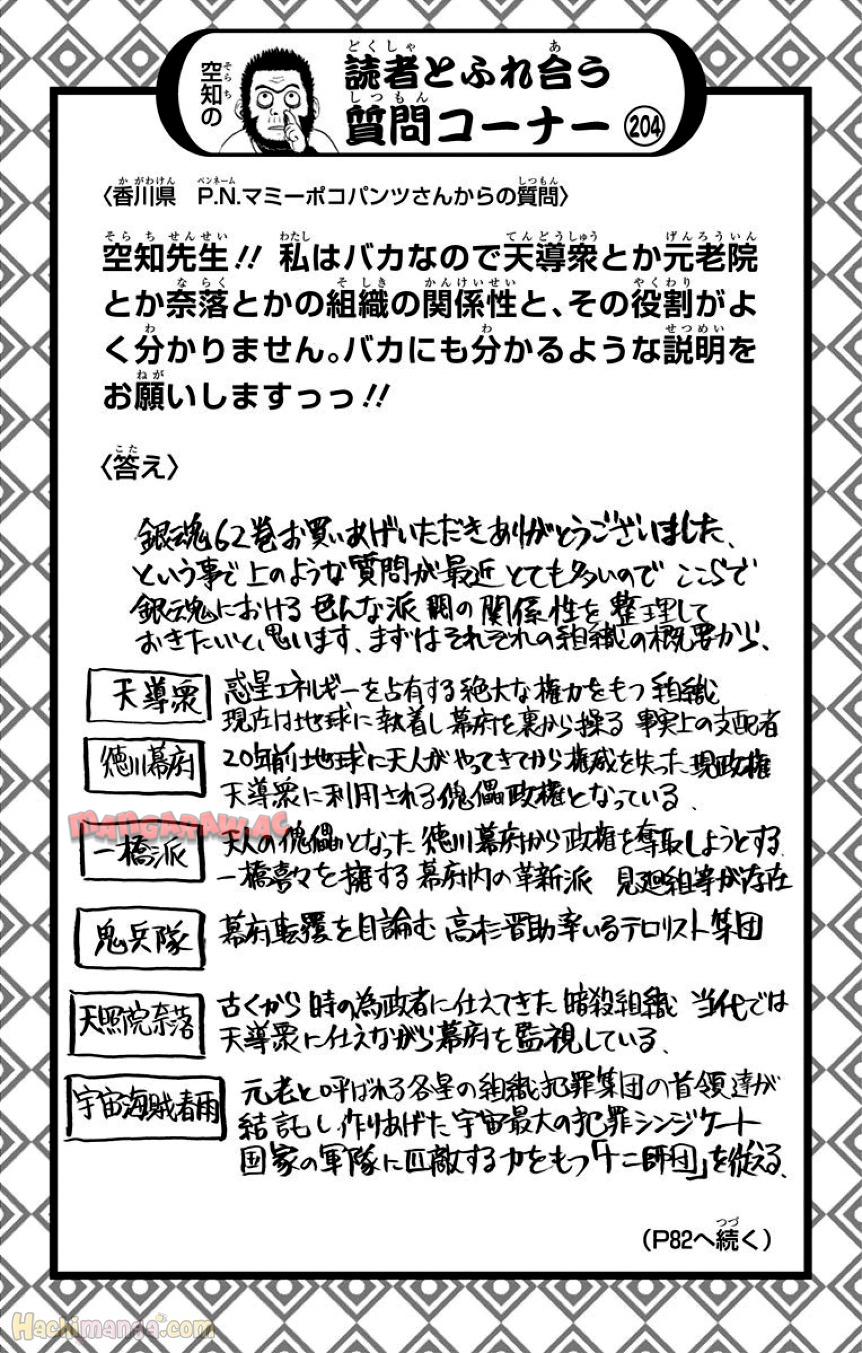 空知の
読者とふれ合う
質問コーナー 204
〈香川県 P.N.マミーポコパンツさんからの質問〉
空知先生!! 私はバカなので天導衆とか元老院
とか奈落とかの組織の関係性と、その役割がよ
く分かりません。バカにも分かるような説明を
お願いしますっっ!!
〈答え〉
銀魂62巻お買いあげいただきありがとうございました、
という事で上のような質問が最近とても多いのでここらで
銀魂における色んな派閥の関係性を整理して
おきたいと思います、まずはそれぞれの組織の概要から、
天導衆
惑星エネルギーを占有する絶大な権力をもつ組織
現在は地球に執着し幕府を裏から操る事実上の支配者
徳川幕府
20年前地球に天人がやってきてから権威を失った現政権
天導衆に利用される傀儡政権となっている、
MANGARAW.AC
一橋派
天人の傀儡となった徳川幕府から政権を奪取しようとする
一橋喜々を擁する幕府内の革新派 見廻組等が存在
鬼兵隊
幕府転覆を目論む高杉晋助率いるテロリスト集団
天照院奈落
古くから時の為政者に仕えてきた暗殺組織 当代では
天導衆に仕えながら幕府を監視している、
宇宙海賊春雨
元老と呼ばれる各星の組織犯罪集団の首領達が
結託し作りあげた宇宙最大の犯罪シンジケート
国家の軍隊に匹敵する力をもつ「十二師団」を従える、
(P82へ続く)
Hachimanga.com